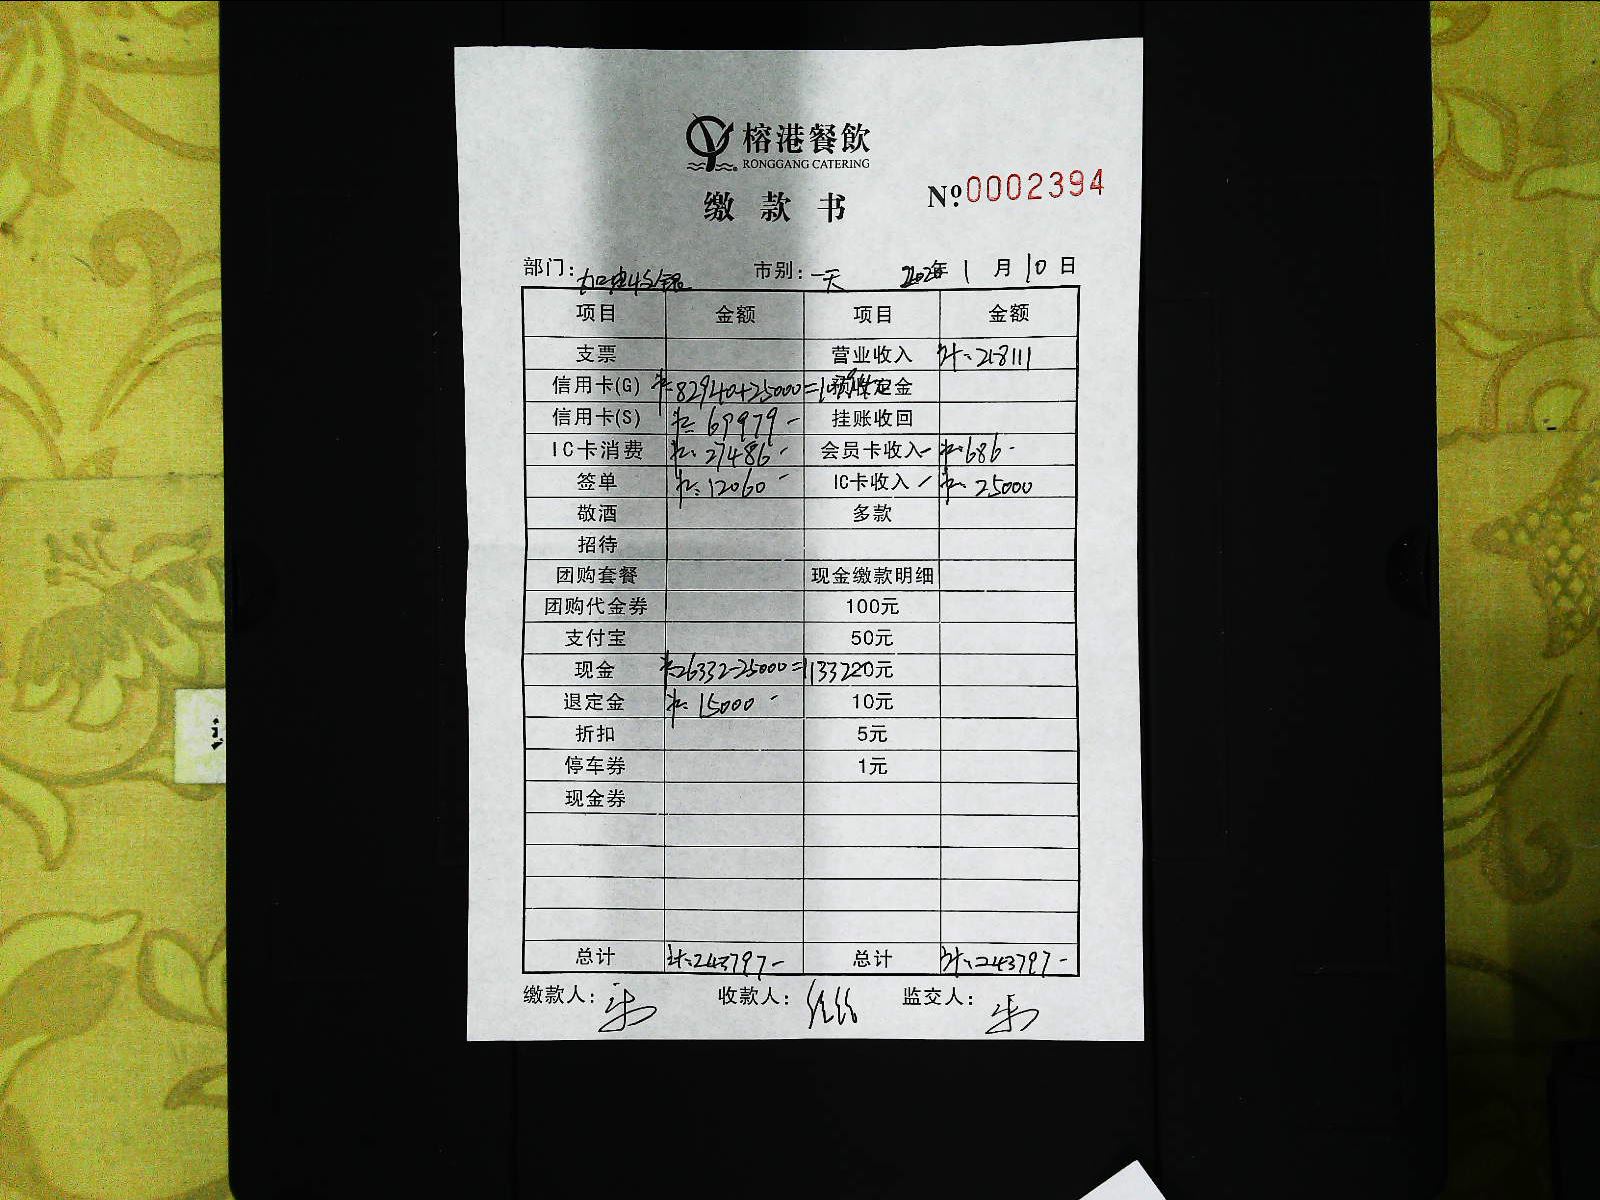 榕港餐飲
RONGGANG CATERING
缴款书
№0002394
部门: 市别: 一天 2020年 1月 10日
项目 金额 项目 金额
支票 营业收入 218111
信用卡(G) 82940+25000= 预收定金
信用卡(S) 69979- 挂账收回
IC卡消费 27486- 会员卡收入- 686-
签单 12060- IC卡收入- 25000
敬酒 多款
招待
团购套餐 现金缴款明细
团购代金券 100元
支付宝 50元
现金 26332-25000=1332 20元
退定金 15000- 10元
折扣 5元
停车券 1元
现金券
总计 243797- 总计 243797-
缴款人: 收款人: 监交人: